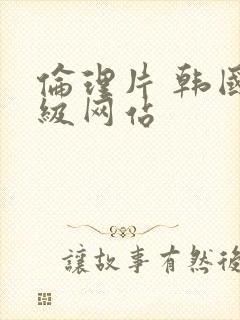 倫理片 韩國
級网站
讓故事有然後